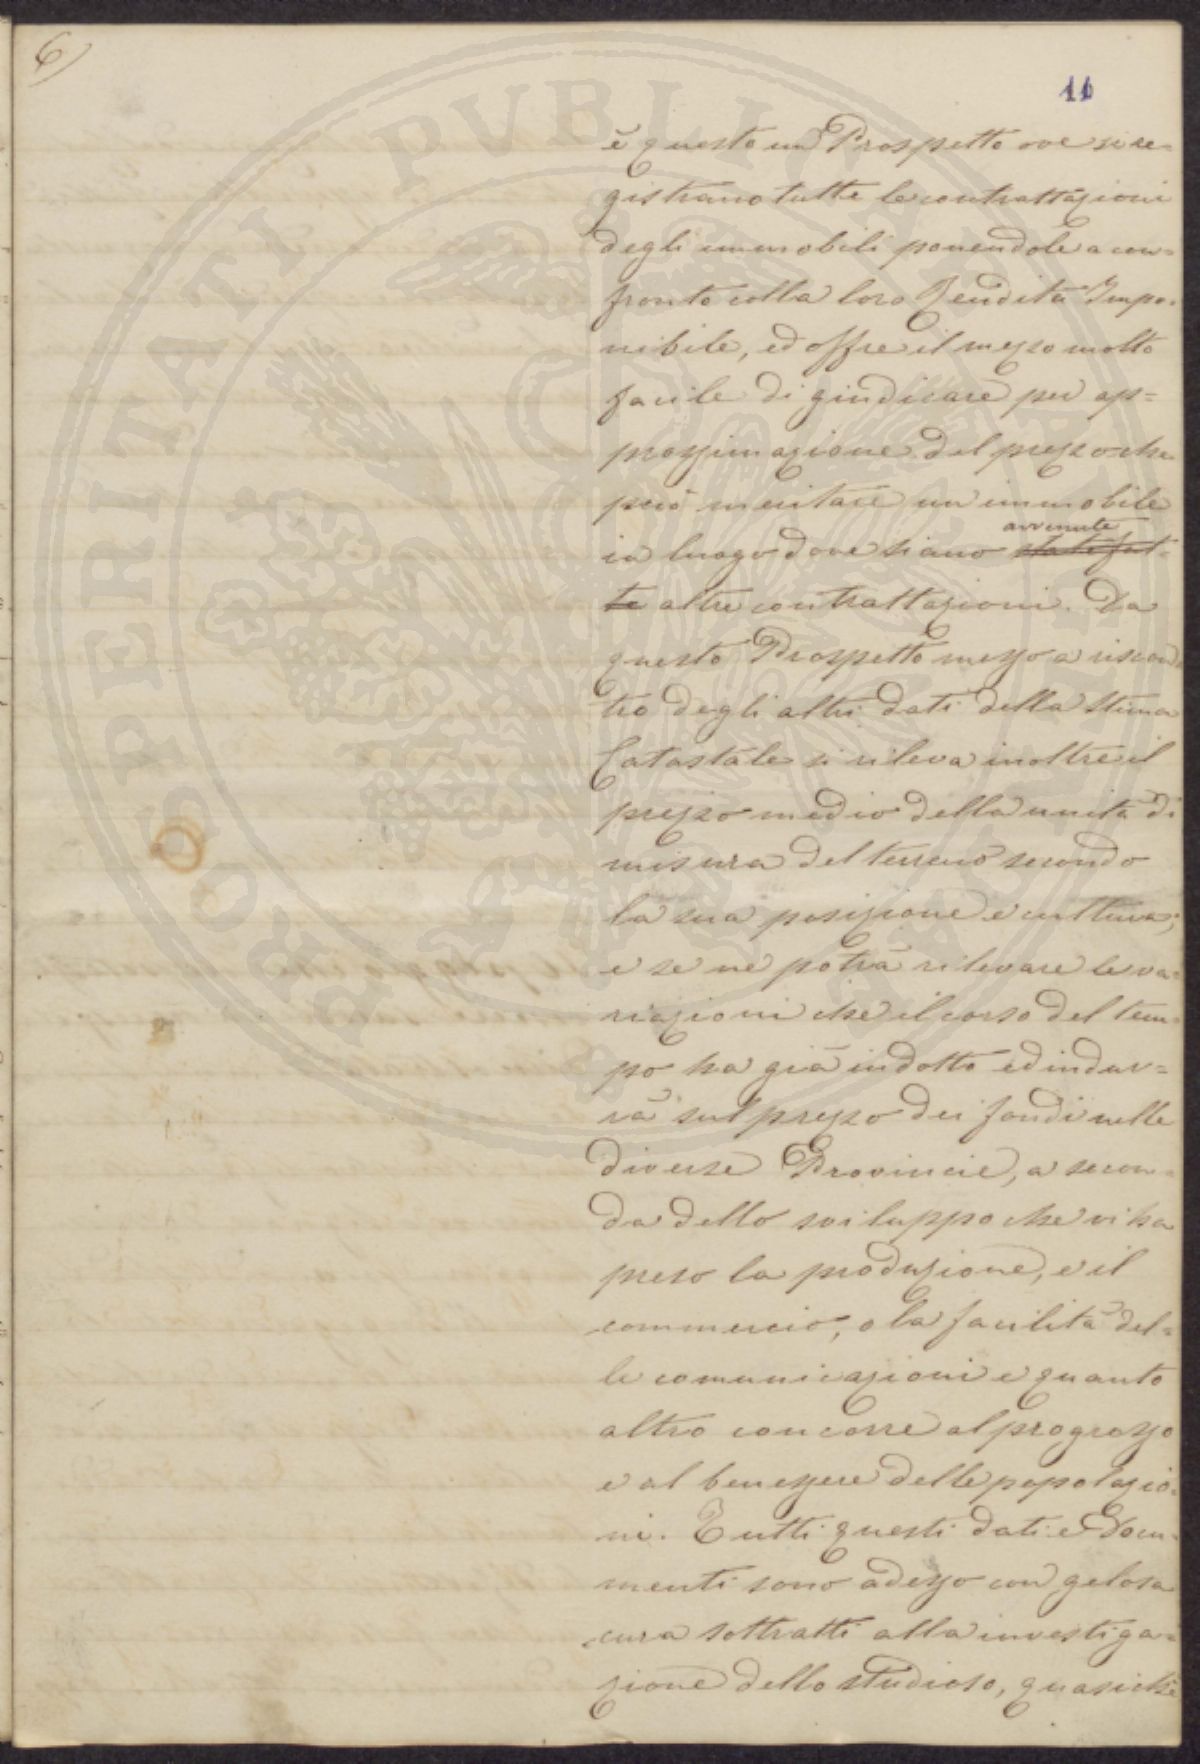 6)
11
è questo un Prospetto ove si re=
gistrano tutte le contrattazioni
degli immobili ponendole a con=
fronto colla loro Rendita Impo=
nibile, ed offre il mezzo molto
facile di giudicare per ap=
prossimazione del prezzo che
può meritare un immobile
in luogo dove siano state fat=
avvenute
te altre contrattazioni. Da
questo Prospetto messo a riscon=
tro degli altri dati della Stima
Catastale si rileva inoltre il
prezzo medio della unità di
misura del terreno secondo
la sua posizione e cultura;
e se ne potrà rilevare le va=
riazioni che il corso del tem=
po ha già indotto ed indur=
rà sul prezzo dei fondi nelle
diverse Provincie, a secon=
da dello sviluppo che vi ha
preso la produzione, e il
commercio, o la facilità del=
le comunicazioni e quanto
altro concorre al progresso
e al benessere delle popolazio=
ni. Tutti questi dati e Docu=
menti sono adesso con gelosa
cura sottratti alla investiga=
zione dello studioso, quasichè
PROSPERITATI PVBLICAE